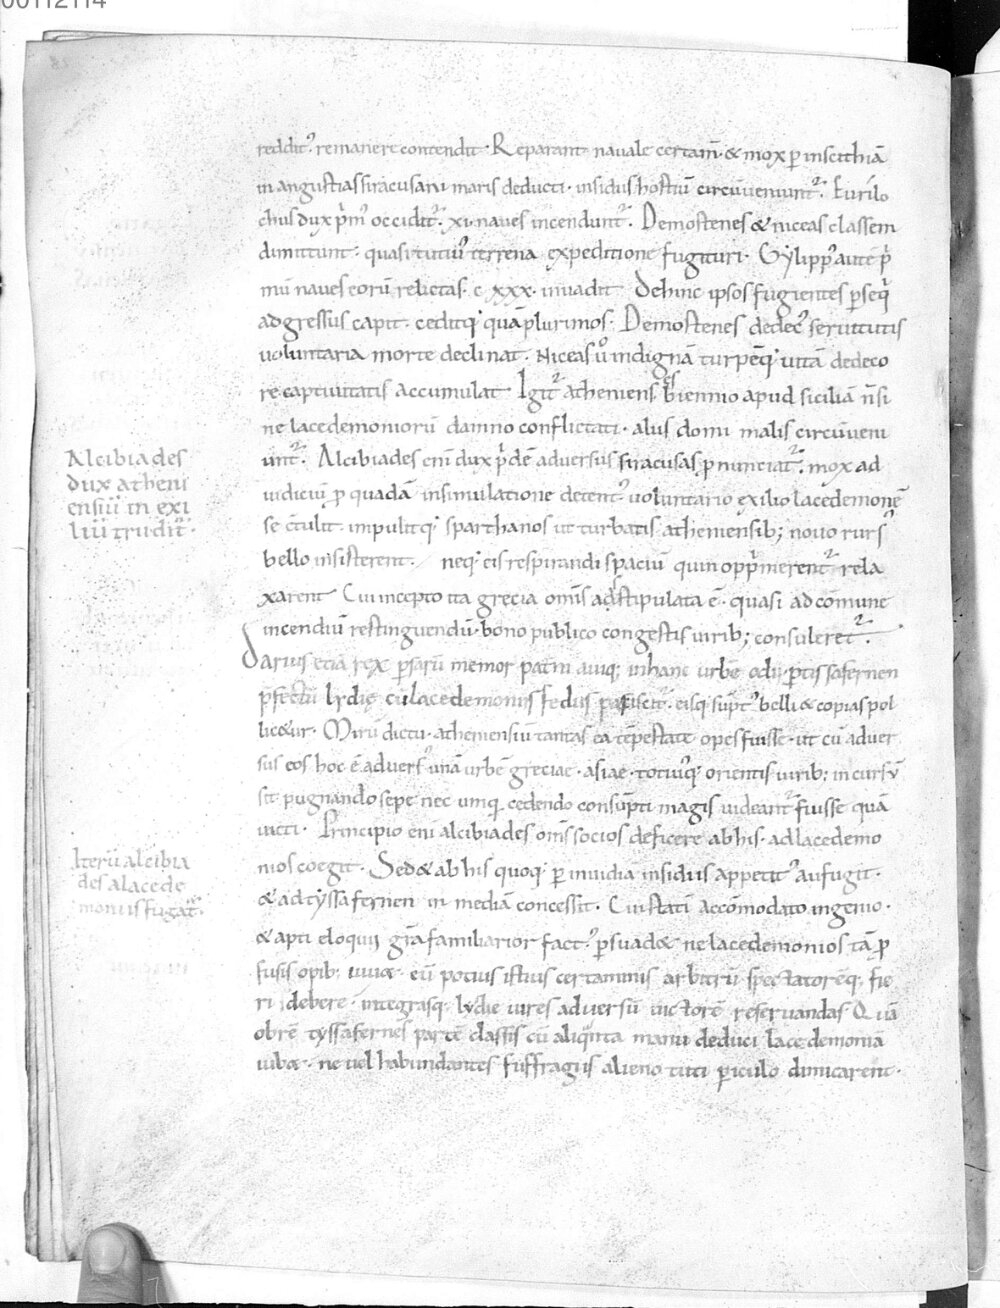 00112114
reddit᷒ remanere contendit · Reparant navale certam̄ · & mox ꝑ inscithiā
in angustias siracusani maris deducti · insidiis hostiū circūveniunt᷒ · Eurilo
chus dux p̄m᷒ occidit᷒ · xi · naves incendunt᷒ · Demostenes & niceas classem
dimittunt · quasi tutiu᷒ terrena expeditione fugituri · Gylipp᷒ autē p̄
mū naves eorū relictas · c xxx · invadit · Dehinc ipsos fugientes ꝑseq̄
adgressus capit · ceditq; quā plurimos · Demostenes dedec᷒ servitutis
voluntaria morte declinat · Niceas u᷒ indignā turpēq; vitā dedeco
re captivitatis accumulat Igit᷒ athenienses biennio apud siciliā n̄ si
ne lacedemoniorū damno conflictati · aliis domi malis circūveni
unt᷒ · Alcibiades eni dux p̄dē adversus siracusas ꝓnunciat᷒ · mox ad
iudiciū ꝓ quadā insimulatione detent᷒ voluntario exilio lacedemonē
se c̄tulit · impulitq; sparthanos ut turbatis atheniensib; novo rurs᷒
bello insisterent · neq; eis respirandi spaciū quin opp̄merent᷒ rela
xarent Cui incepto ita grecia om̄is adstipulata ē · quasi ad cōmune
incendiū restinguendū · bono publico congestis virib; consuleret᷒ ·
Darius etiā rex ꝑsarū memor patni aviq; in hanc urbē odii · ꝑ tissafernen
p̄fectū lydie cū lacedemoniis fedus paciscit᷒ · eisq; sūpt᷒ belli & copias pol
licetur · Mirū dictu · atheniensiū tantas ea tēpestate opes fuisse · ut cū adver
sus eos hoc ē advers᷒ unā urbē greciae · asiae · totiusq; orientis virib; incursū
sit pugnando sepe nec umq; cedendo consūpti magis videant᷒ fuisse quā
victi · Principio eni alcibiades om̄s socios deficere ab his · ad lacedemo
nios coegit · Sed & ab his quoq; ꝑ invidiā insidiis appetit᷒ aufugit ·
& ad tyssafernen in mediā concessit · Cui statī accōmodato ingenio ·
& apti eloquii grā familiarior fact᷒ · ꝑsuad& ne lacedemonios tā ꝓ
fusis opib; iuv& · eū potius istius certaminis arbitrū spectatorēq; fie
ri debere · integrasq; lydie vires adversū victorē reservandas Quā
obrē tyssafernes partē classis cū aliqanta manu deduci lacedemoniā
iub& · ne vel habundantes suffragiis alieno tuti ꝑiculo dimicarent ·
Alcibiades
dux atheni
ensiū in exi
liū trudit᷒ ·
Iterū alcibia
des a lacede
moniis fugat᷒ ·